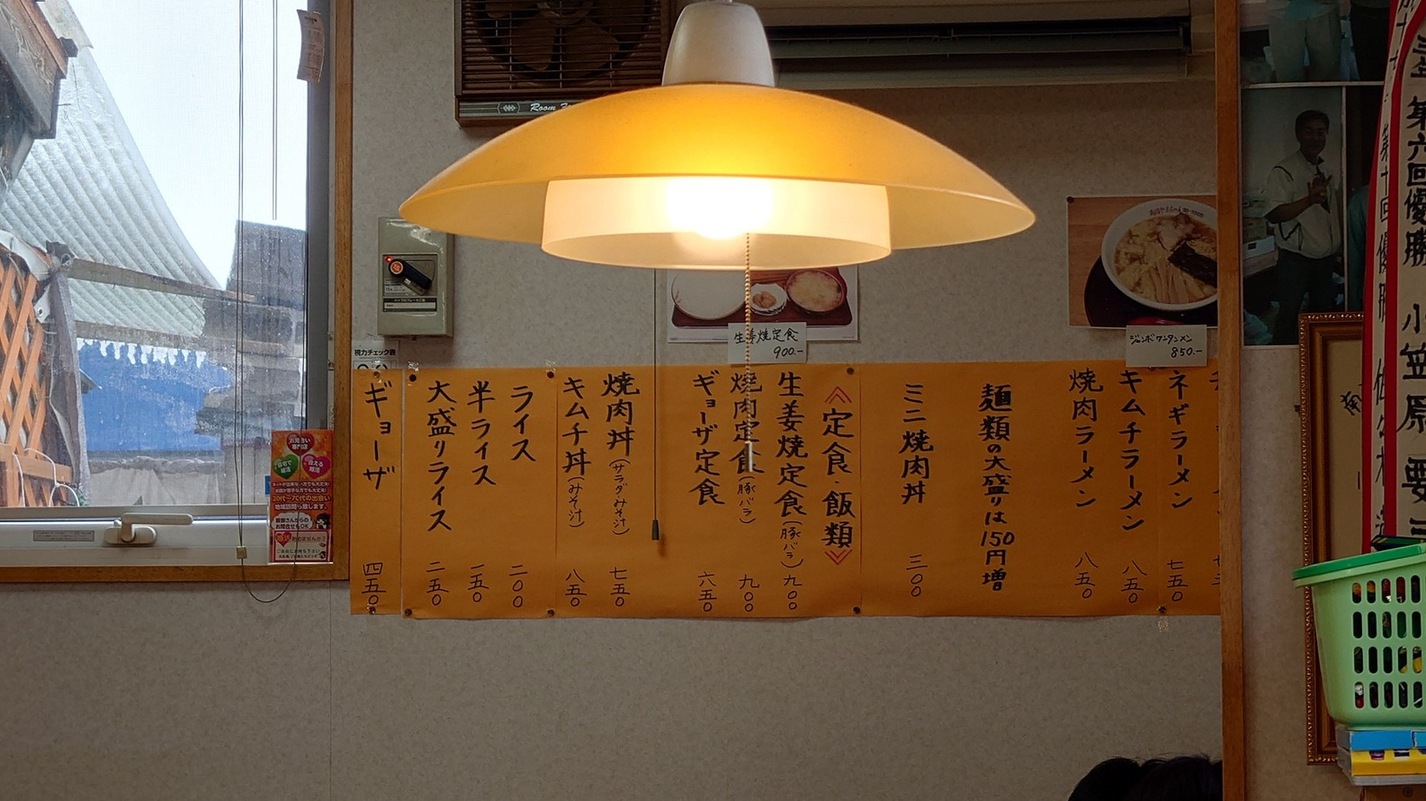 Room
生姜焼定食
900.-
ジャンボワンタンメン
850.-
視力チェック表
ネギラーメン 七五〇
キムチラーメン 八五〇
焼肉ラーメン 八五〇
麺類の大盛りは150円増
ミニ焼肉丼 三〇〇
定食・飯類
生姜焼定食(豚バラ) 九〇〇
焼肉定食(豚バラ) 九〇〇
ギョーザ定食 六五〇
焼肉丼(サラダみそ汁) 七五〇
キムチ丼(みそ汁) 八五〇
ライス 二〇〇
半ライス 一五〇
大盛りライス 二五〇
ギョーザ 四五〇
お見合い
専門店
20代～70代の出会い
第六回優勝 小笠原
第十回優勝